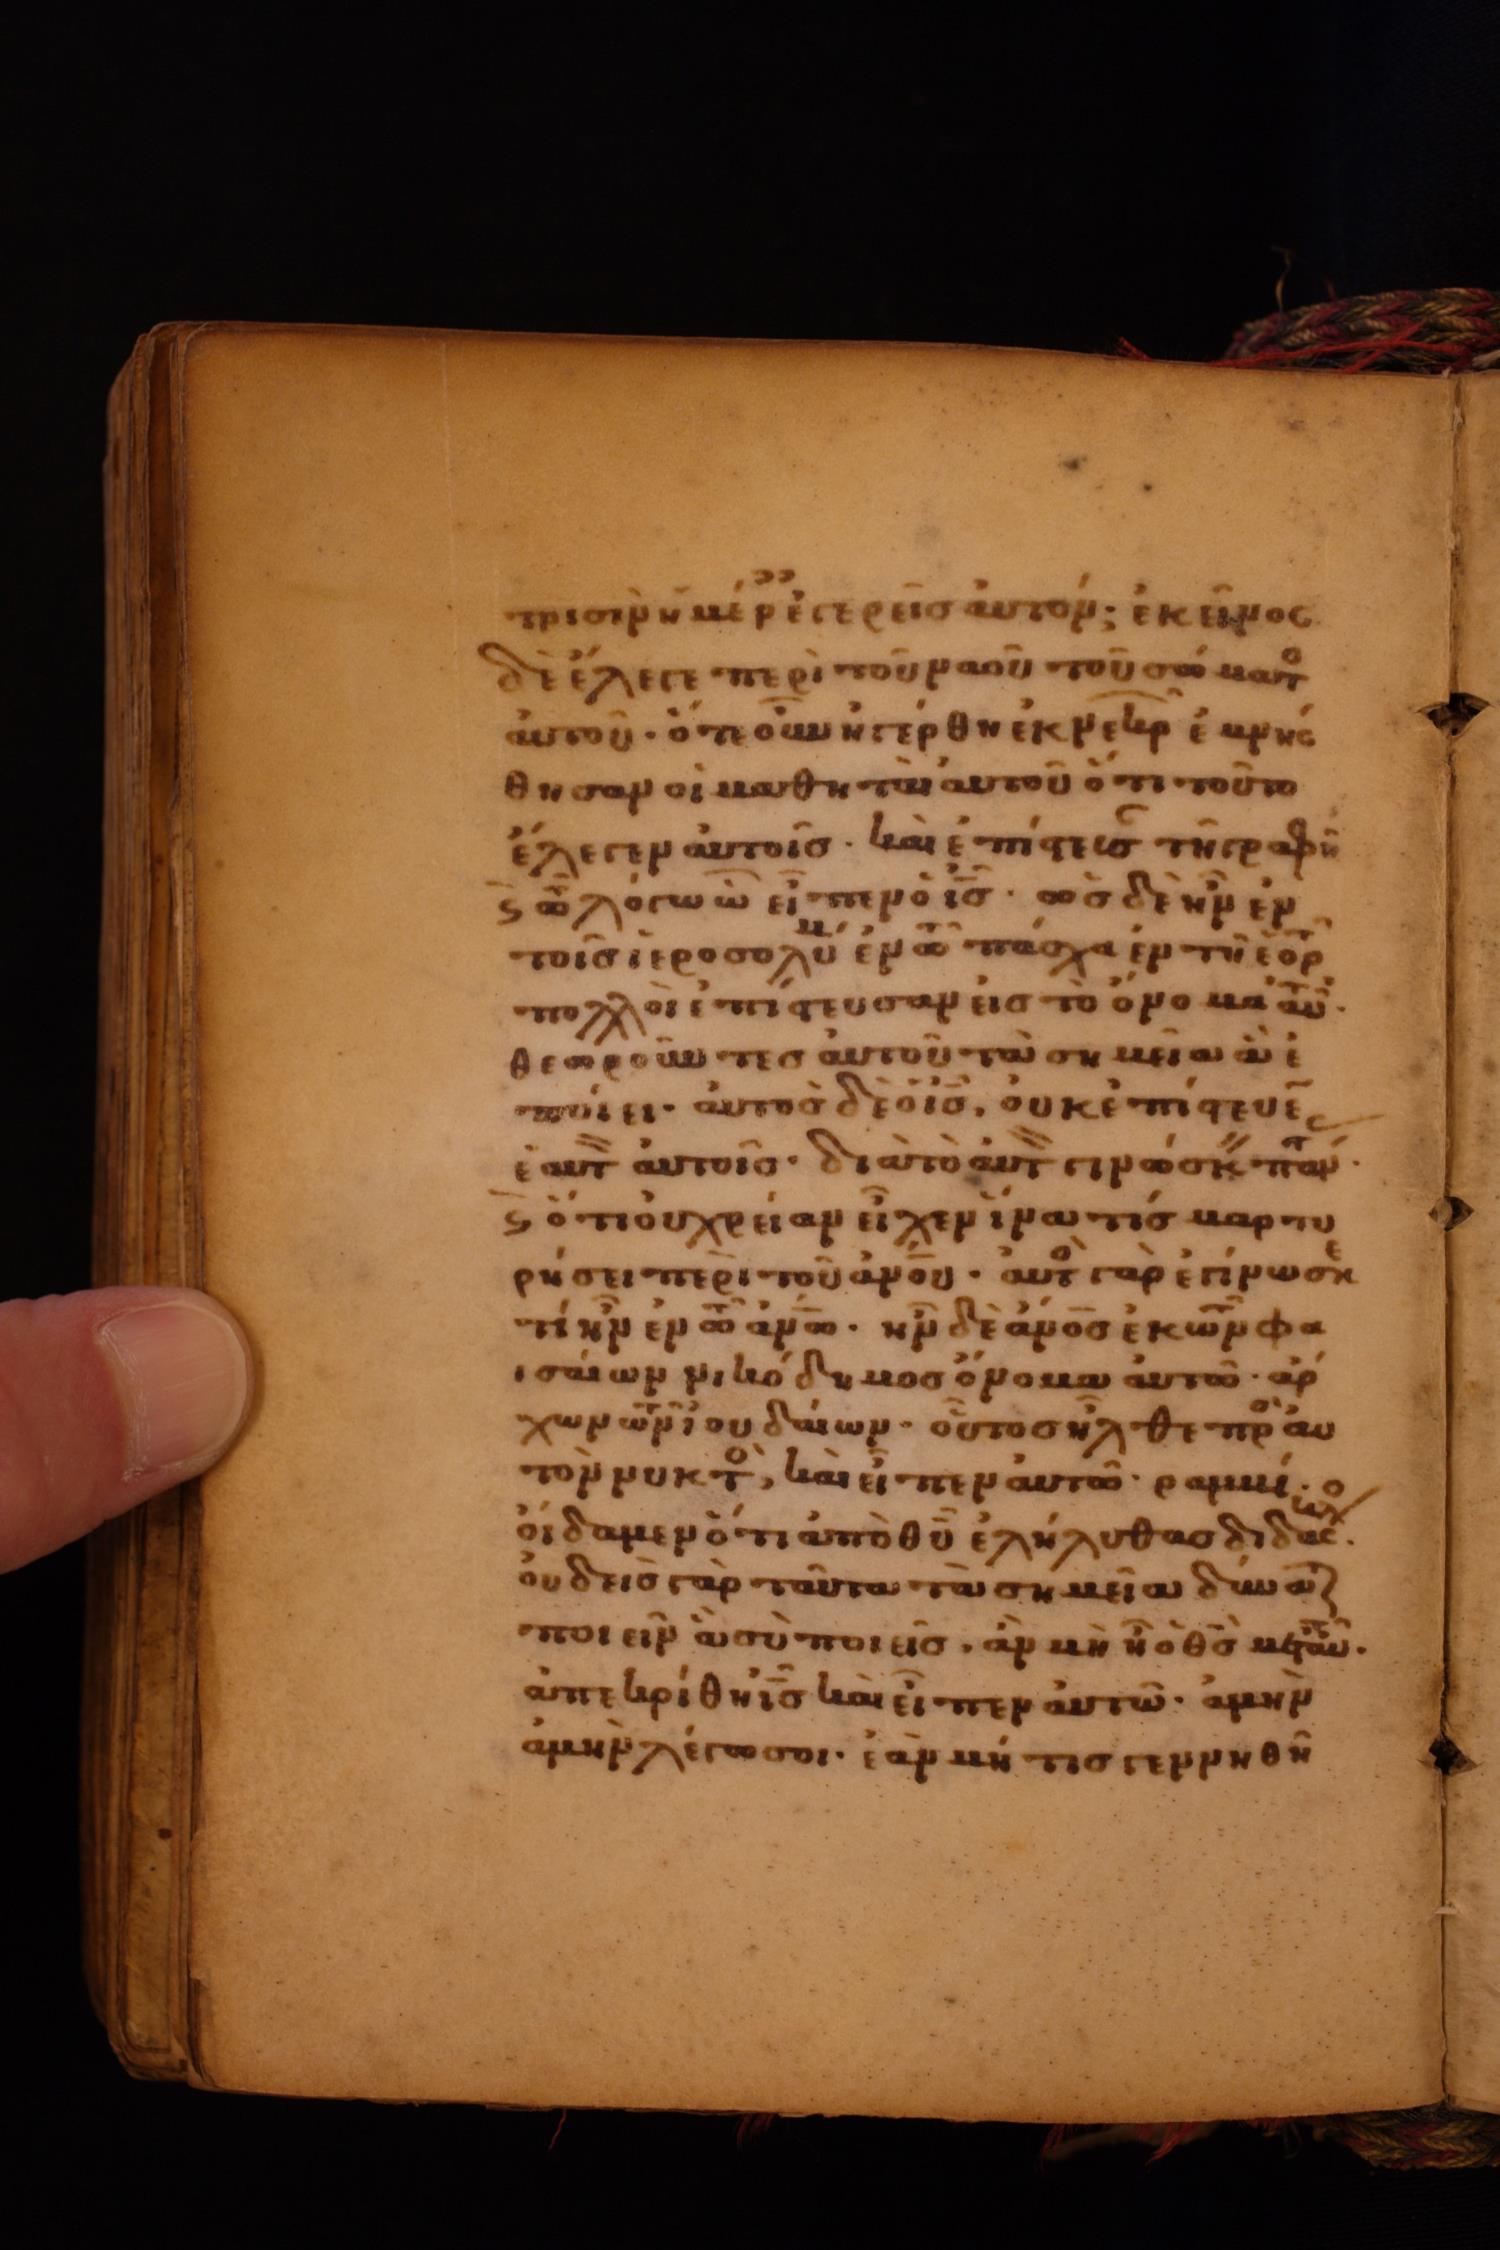 τρισὶν ἡμέρ ἐγερεῖσ ἀυτόν; ἐκεῖνοσ
δὲ ἔλεγε περὶ τοῦ ναοῦ τοῦ σώματ
ἀυτοῦ· ὅτε οῦν ἠγέρθη ἐκ νεκρ ἐμνήσ
θησαν οἱ μαθηταὶ ἀυτοῦ ὅτι τοῦτο
ἔλεγεν ἀυτοῖσ· καὶ ἐπίστευσ τῆ γραφῆ
ϛ τῶ λόγω ὧ εἶπεν ὁ ι̅σ̅· ὡσ δὲ ἦν ἐν
τοῖσ ἱεροσολύμ ἐν τῶ πάσχα ἐν τῆ ἑορτ
πολλοὶ ἐπίστευσαν εἰσ τὸ ὄνομα ἀυτ·
θεωροῦντεσ ἀυτοῦ τὰ σημεῖα ἃ ἐ
ποίει· ἀυτὸσ δὲ ὁ ι̅σ̅, ὀυκ ἐπίστευε
ἑαυτ ἀυτοῖσ· διὰ τὸ ἀυτ γινώσκ πάντ·
ϛ ὅτι ὀυ χρείαν εἶχεν ἵνα τίσ μαρτυ
ρήσει περὶ τοῦ α̅ν̅ο̅υ̅· ἀυτὸ γὰρ ἐγίνωσκε
τί ἦν ἐν τῶ α̅ν̅ω̅· ἦν δὲ α̅ν̅ο̅σ̅ ἐκ τῶν φα
ισαίων νικόδημοσ ὄνομα ἀυτῶ· ἄρ
χων τῶν ἰουδαίων· οὗτοσ ἦλθε πρὸ ἀυ
τὸν νυκτὸ, καὶ εἶπεν ἀυτῶ· ραμμί·
οἴδαμεν ὅτι ἀπὸ θ̅υ̅ ἐλήλυθασ διδάσκαλο·
ὀυδεὶσ γὰρ ταῦτα τὰ σημεῖα δύναται
ποιεῖν ἃ σὺ ποιεῖσ, ἂν μὴ ἦ ὁ θ̅σ̅ μετ ἀυτ·
ἀπεκρίθη ι̅σ̅ καὶ εἶπεν ἀυτῶ· ἀμὴν
ἀμὴν λέγω σοι· ἐὰν μή τισ γεννηθῆ